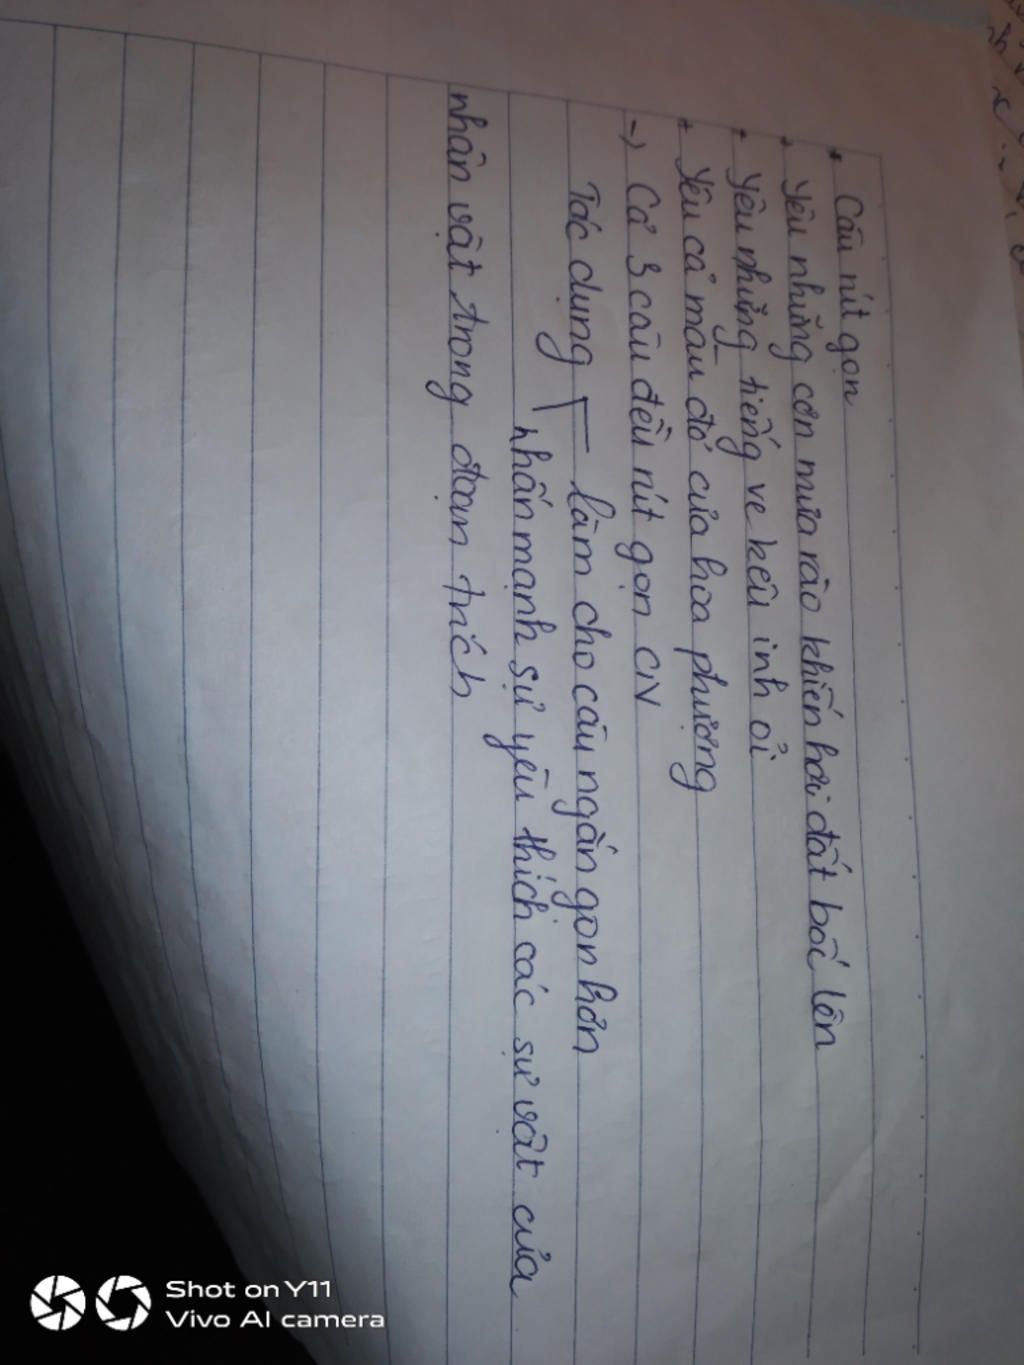 * Câu rút gọn
+ Yêu những cơn mưa rào khiến hơi đất bốc lên
+ Yêu những tiếng ve kêu inh ỏi
+ Yêu cả màu đỏ của hoa phượng
-> Cả 3 câu đều rút gọn CN
Tác dụng làm cho câu ngắn gọn hơn
nhấn mạnh sự yêu thích các sự vật của
nhân vật trong đoạn trích
Shot on Y11
Vivo AI camera